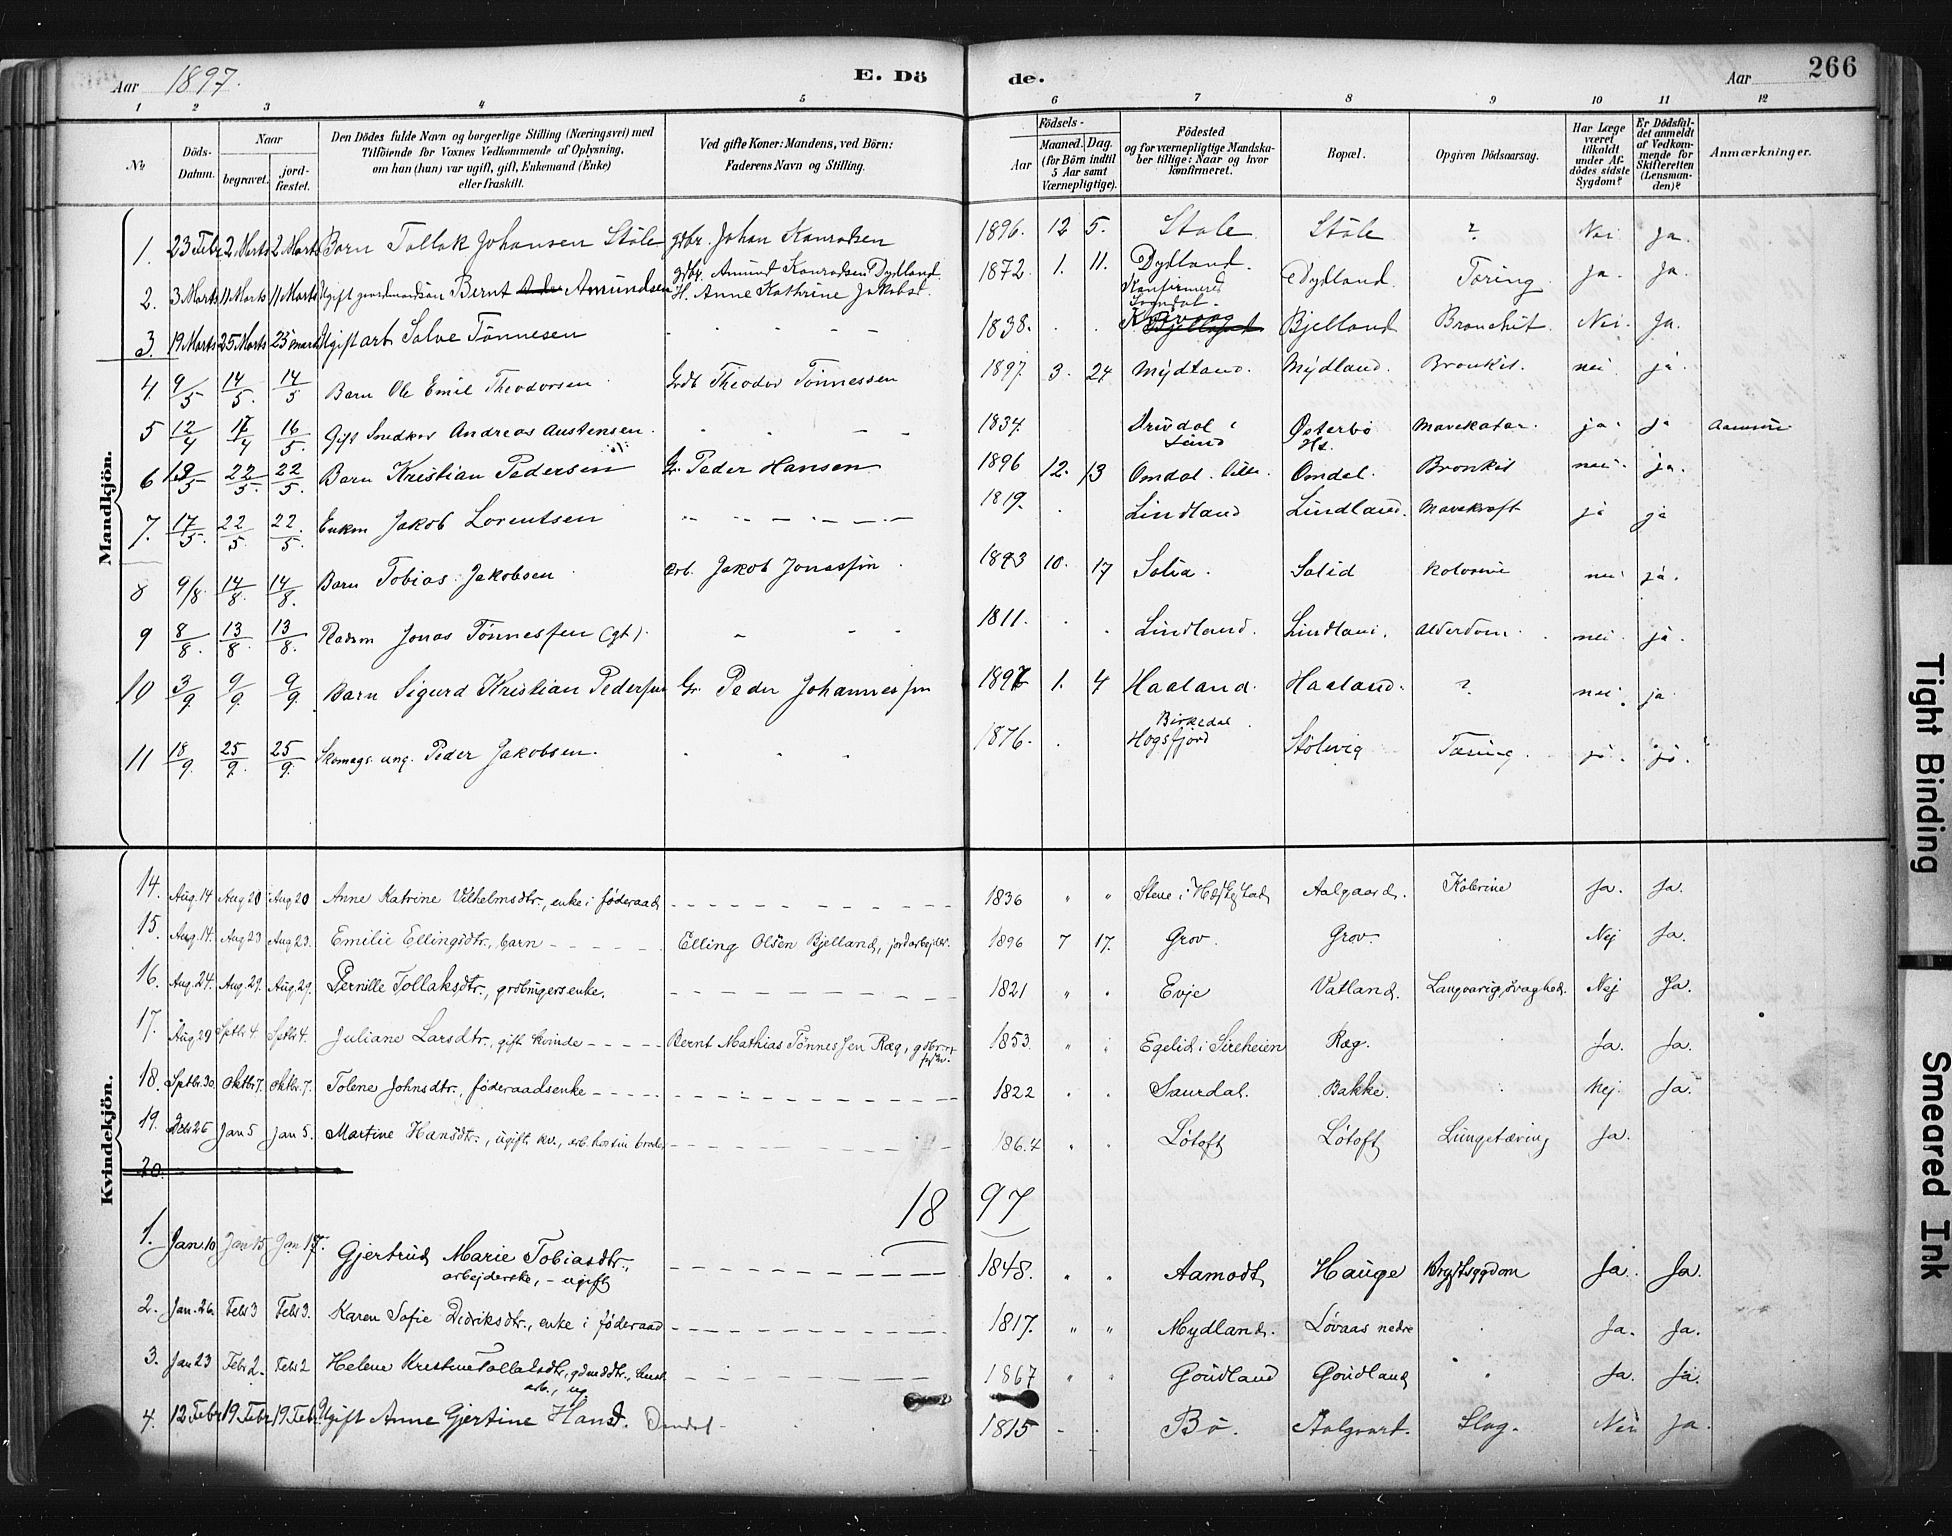 Aar 1897.
E. Dö
de.
Aar
266
1 2 3 4 5 6 7 8 9 10 11 12
№
Döds-Datum.
Naar
begravet.
jord-fæstet.
Den Dödes fulde Navn og borgerlige Stilling (Næringsvei) med
Tilföiende for Voxnes Vedkommende af Oplysning,
om han (hun) var ugift, gift, Enkemand (Enke)
eller fraskilt.
Ved gifte Koner: Mandens, ved Börn:
Faderens Navn og Stilling.
Födsels-
Aar
Maaned. Dag.
(for Börn indtil
5 Aar samt
Værnepligtige).
Födested
og for værnepligtige Mandska-
ber tillige: Naar og hvor
konfirmeret.
Bopæl.
Opgiven Dödsaarsag.
Har Læge
været
tilkaldt
under Af-
dödes sidste
Sygdom?
Er Dödsfal-
det anmeldt
af Vedkom-
mende for
Skifteretten
(Lensman-
den)?
Anmærkninger.
Mandkjön.
1. 23 Febr 2 Marts 2 Marts Barn Tollak Johansen Stöle gdbr. Johan Konradsen 1896. 12 5. Stöle Stöle ? Nei Ja.
2. 3 Marts 11 Marts 11 Marts Ugift gaardmandsön Bernt Amundsen gdbr. Amund Konradsen Dydland H. Anne Kathrine Jakobsd. 1872. 1. 11. Dydland. Konfirmeret Sogndal. Dydland. Tæring. Ja. Ja.
3. 19 Marts 25 Marts 25 marts Ugift arb Salve Tönnesen 1838. Bjelland Bjelland Bronchit. Nei. Ja.
4. 9/5 14/5. 14/5 Barn Ole Emil Theodorsen Grdb Theodor Tönnessen 1897. 3. 24 Mydland. Mydland. Bronkit. nei. ja.
5 12/4 17/4 16/5. Gift Snedker Andreas Austensen. 1834. Drivdal i Lund Österbö Hs. Mavekatar. ja. ja
6 19/5 22/5. 22/5. Barn Kristian Pedersen G. Peder Hansen 1896 12. 13 Omdal. Omdal. Bronkit nei. ja.
7. 17/5. 22/5. 22/5. Enkm Jakob Lorentsen 1819. Lindland Lindland. Mavekræft ja ja
8 9/8. 14/8. 14/8. Barn Tobias Jakobsen arb. Jakob Jonassen 1893 10. 17 Solid. Solid Kolerine nei ja.
9 8/8. 13/8. 13/8. Jonas Tönnessen (gt). 1811. Lindland. Lindland. Alderdom. nei. ja.
10 3/9 9/9. 9/9. Barn Sigurd Kristian Pedersen G. Peder Johannessen 1897 1. 4 Haaland. Haaland. ? nei. ja
11 18/9. 25/9. 25/9. Skomag. ung. Peder Jakobsen. 1876. Birkedal Høgsfjord Stölevig Tæring. ja. ja.
Kvindekjön.
14. Aug. 14 Aug 20 Aug 20 Anne Katrine Vilhelmsdtr., enke i föderaad 1836 " " Stene i Hæskestad Aalgaard. Kolerine Ja. Ja.
15. Aug. 14. Aug 23 Aug 23. Emilie Ellingsdtr., barn Elling Olsen Bjelland, jordarbejder. 1896 7 17. Grov. Grov. Nej Ja.
16. Aug. 24. Aug. 29. Aug. 29. Pernille Tollaksdtr., grdbrugersenke. 1821 " " Evje Vatland. Langvarig svaghed. Nej Ja.
17. Aug. 29 Sptbr 4. Sptbr 4. Juliane Larsdtr., gift kvinde Bernt Mathias Tönnessen Ræg, gdbr. 1853 " " Egelid i Sireheien Ræg. Ja. Ja.
18. Sptbr. 30. Oktbr 7. Oktbr. 7. Tolene Johnsdtr., föderaadsenke 1822 Saurdal. Bakke. Nej. Ja.
19. Dcbr 26 Jan 5 Jan 5. Martine Hansdtr., ugift kv., arb. hos sin broder 1864 Løtoft Løtoft Lungetæring Ja.
20.
18 97
1. Jan 10 Jan 15 Jan 17. Gjertrud Marie Tobiasdtr., arbejderske, - ugift 1848. " " Aamodt Hauge Brystsygdom Ja. Ja.
2. Jan. 26. Febr 3 Febr 3. Karen Sofie Didriksdtr., enke i föderaad 1817. " " Mydland. Løvaas nedre Ja. Ja.
3. Jan 23 Febr 2. Febr 2 Helene Kristine Tollaksdtr, gdmddtr., arb., ug. 1867 " " Gøudland Gøudland Ja. Ja.
4. 12 Febr 19 Febr 19 Febr. Ugift Anne Gjertine Hansd. Omdal 1815 Bö. Aalgaard. Slag. Nei Ja.
Tight Binding
Smeared Ink